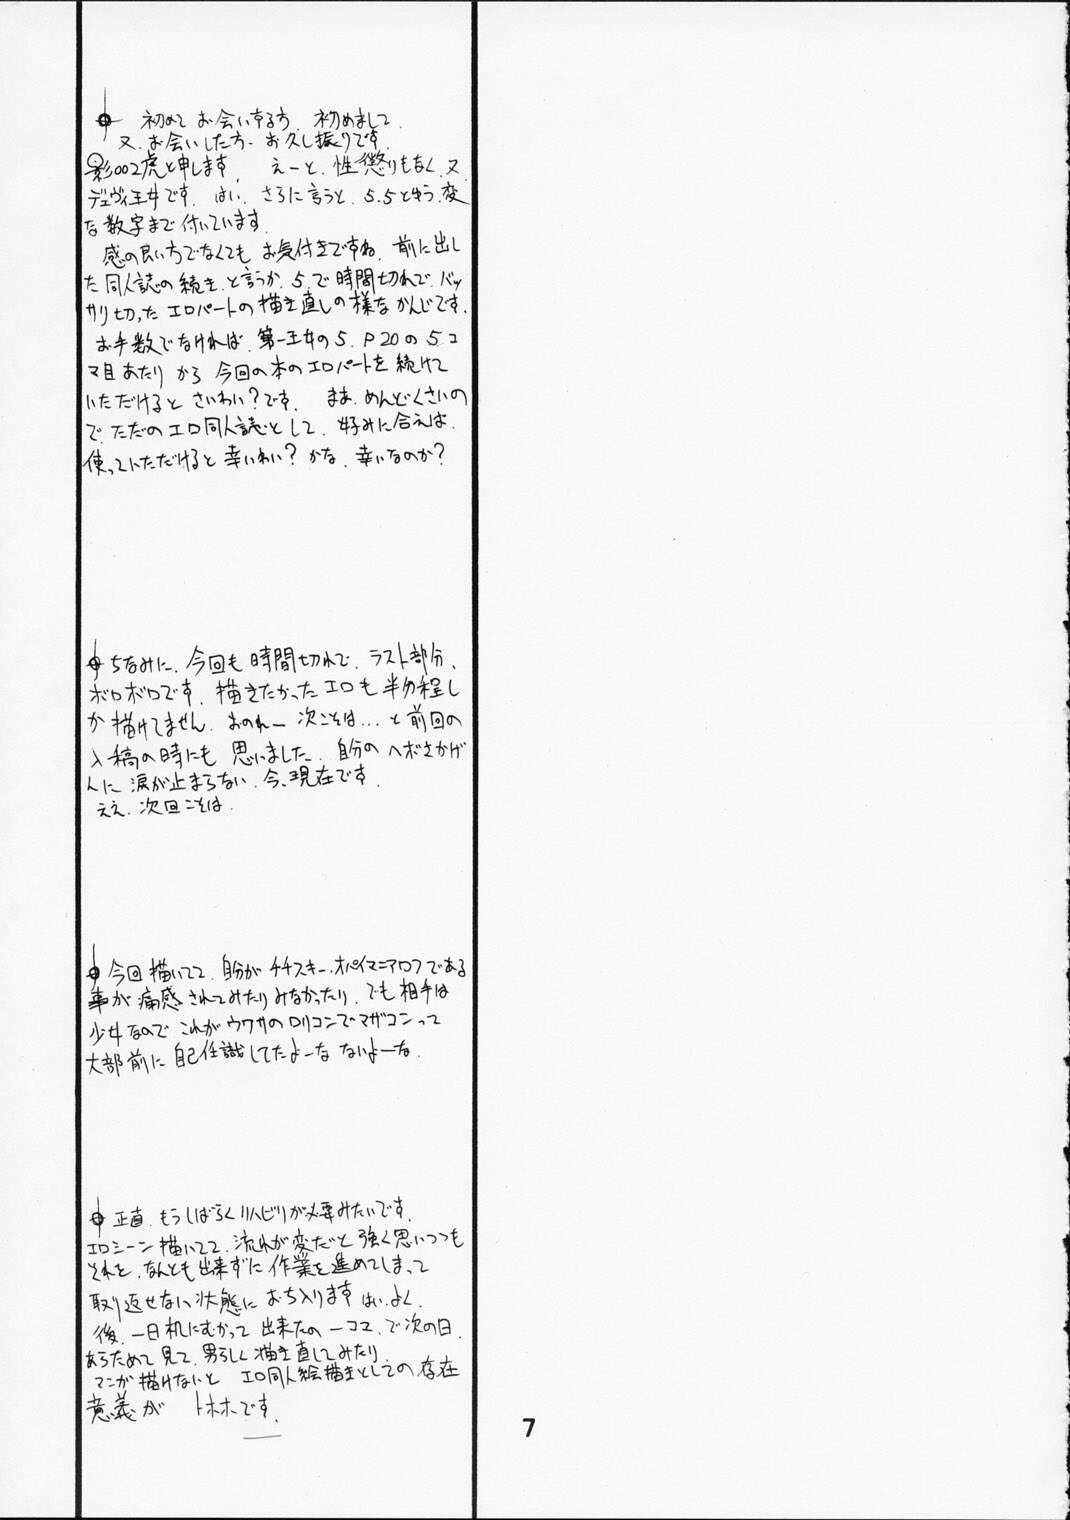 初めて お会いする方、初めまして、
又、お会いした方、お久し振りです。
影002虎と申します。 えーと、性懲りもなく、又、
デュヴィ王女です。はい。さらに言うと、5.5とゆう、変
な数字まで付いています。
感の良い方でなくても お気付きですね。前に出し
た同人誌の続き、と言うか、5で時間切れで、バッ
サリ切った エロパートの描き直しの様なかんじです。
お手数でなければ、第一王女の5、P20の5コ
マ目あたりから 今回の本のエロパートを続けて
いただけると さいわい？です。 まあ、めんどくさいの
で、ただのエロ同人誌として、好みに合えば、
使っていただけると 幸いわい？かな、幸いなのか？
ちなみに、今回も時間切れで、ラスト部分、
ボロボロです。描きたかったエロも半分程し
か描けてません。おのれー 次こそは…と前回の
入稿の時にも 思いました。自分のヘボさかげ
んに 涙が止まらない、今、現在です。
ええ、次回こそは。
今回描いてて、自分が チチスキー、オパイマニアロフである
事が痛感されてみたりみなかったり、でも相手は
少女なので これがウワサのロリコンでマザコンって
大部前に自己任識してたよーな ないよーな。
正直、もうしばらくリハビリが必要みたいです。
エロシーン描いてて、流れが変だと 強く思いつつも
それを、なんとも出来ずに作業を進めてしまって
取り返せない状態に おち入ります はい、よく。
後、一日机にむかって 出来たの一コマ、で次の日、
あらためて見て、男らしく描き直してみたり
マンガ描けないと エロ同人絵描きとしての存在
意義が トホホです。
7